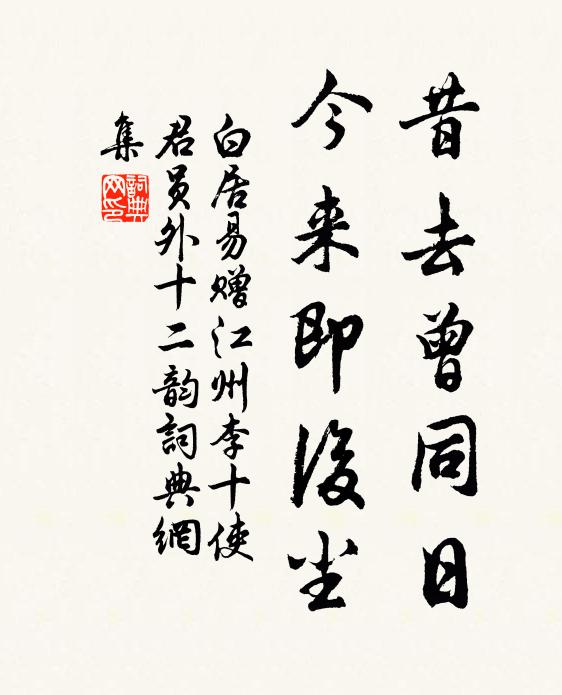 昔去曾同日
今来即後尘
白居易赠江州李十使
君员外十二韵詞典網
集
詞典网印